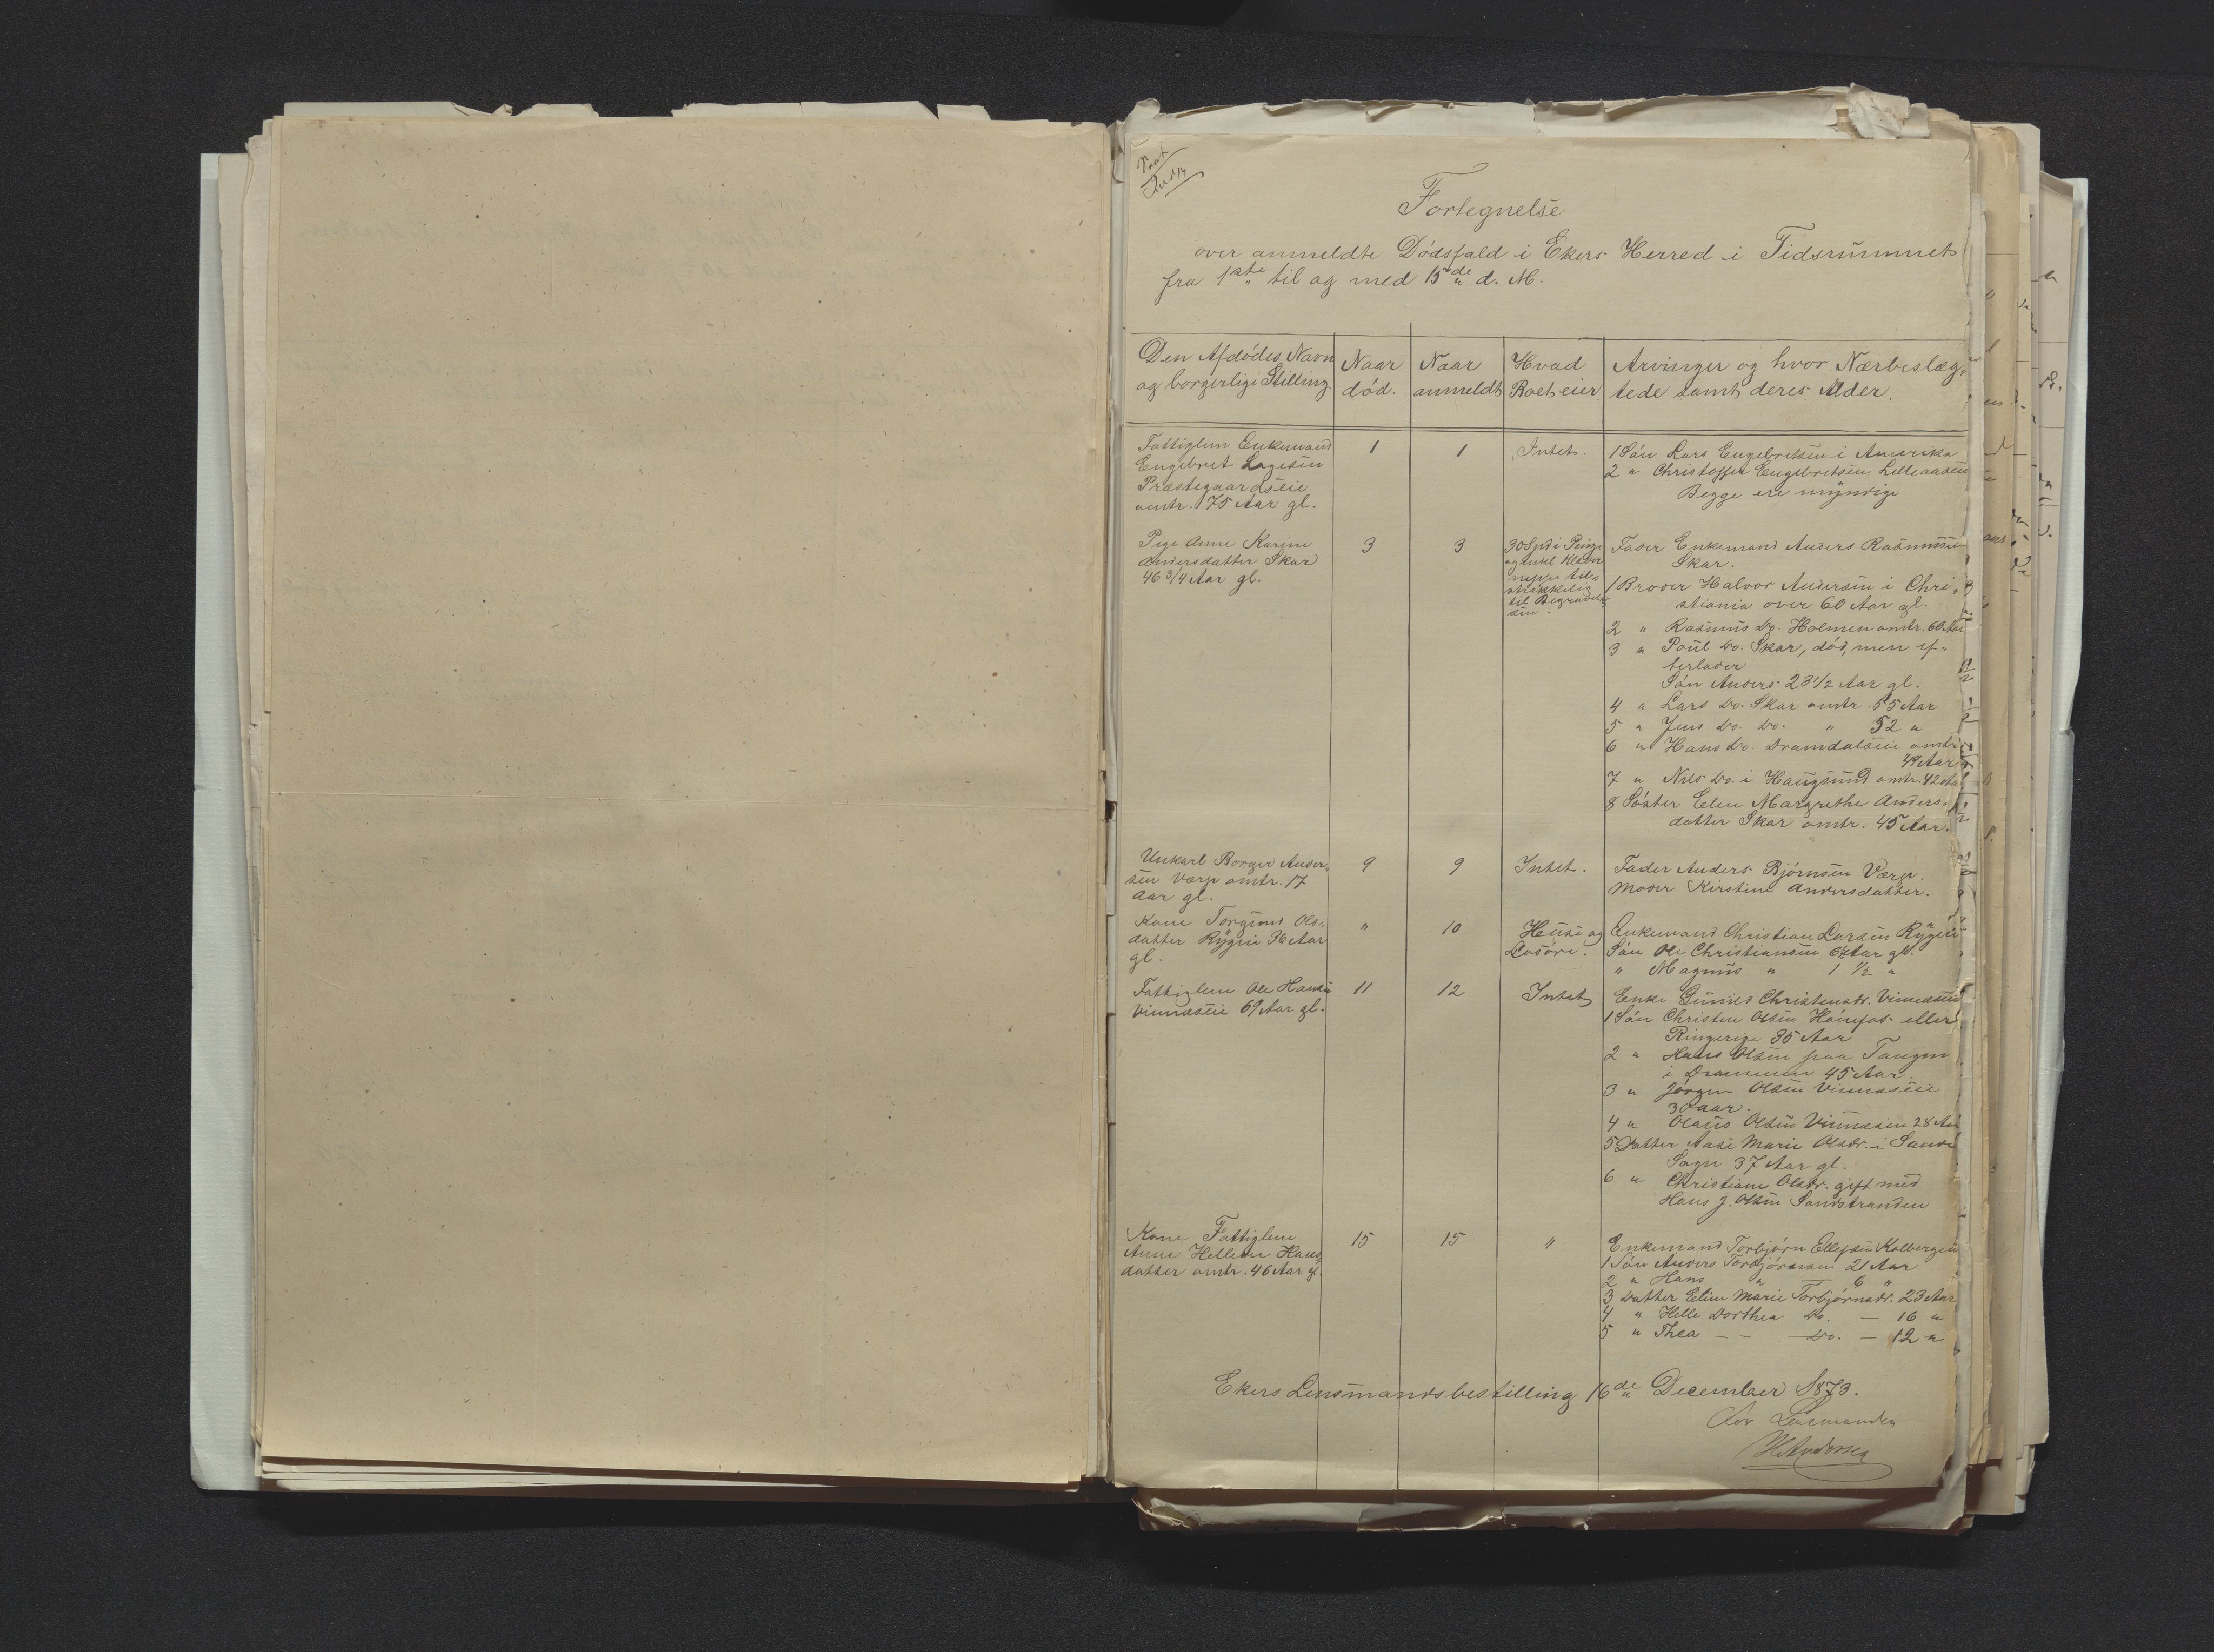 Fortegnelse
over anmeldte Dödsfald i Ekers Herred i Tidsrummet
fra 1ste til og med 15de d. M.
Den Afdödes Navn og borgerlige Stilling
Naar död.
Naar anmeldt
Hvad Boet eier
Arvinger og hvor Nærbeslæg-
tede samt deres Alder.
Fattiglem Enkemand
Engebret Lagesen
Præstegaardseie
omtr. 75 Aar gl.
1
1
Intet.
1 Sön Lars Engebretsen i Amerika
2 " Christoffer Engebretsen Lilleaasen
Begge ere myndige
Pige Anne Karine
Andersdatter Skar
46 3/4 Aar gl.
3
3
30 Spd i Penge
og endel Klæder
neppe til-
strækkelig
til Begravel-
sen.
Fader Enkemand Anders Rasmussen
Skar.
1 Broder Halvor Andersen i Chri-
stiania over 60 Aar gl.
2 " Rasmus Do. Holmen omtr. 60 Aar
3 " Poul Do. Skar, död, men ef-
terlader
Sön Anders 23 1/2 Aar gl.
4 " Lars Do. Skar omtr. 55 Aar
5 " Jens Do. Do. " 52 "
6 " Hans Do. Dramdalseie omtr.
49 Aar
7 " Nils Do. i Haugsund omtr. 42 Aar
8 Söster Elen Margrethe Anders-
datter Skar omtr. 45 Aar.
Unkarl Borger Ander-
sen Værp omtr. 17
Aar gl.
9
9
Intet.
Fader Anders Björnsen Værp.
Moder Kirstine Andersdatter.
Kone Torgund Ols-
datter Rygeie 36 Aar
gl.
"
10
Huse og
Lösöre.
Enkemand Christian Larsen Rygeie
Sön Ole Christiansen 6 1/2 Aar gl.
" Magnus " 1 1/2 "
Fattiglem Ole Hansen
Vinnæseie 69 Aar gl.
11
12
Intet
Enke Gunild Christensdr. Vinnæseie
1 Sön Christen Olsen Hönefos eller
Ringerige 35 Aar
2 " Hans Olsen paa Tangen
i Drammen 45 Aar
3 " Jörgen Olsen Vinnæseie
30 Aar.
4 " Olaus Olsen Vinnæseie 28 Aar
5 Datter Aase Marie Olsdr. i Sande
Sogn 37 Aar gl.
6 " Christiane Olsdr. gift med
Hans J. Olsen Sandstranden
Kone Fattiglem
Anne Hellene Hans-
datter omtr. 46 Aar gl.
15
15
"
Enkemand Torbjörn Ellefsen Kolbergeie
1 Sön Anders Torbjörnsen 21 Aar
2 " Hans " — 6 "
3 Datter Eline Marie Torbjörnsdr. 23 Aar
4 " Helle Dorthea Do. — 16 "
5 " Thea — — Do. — 12 "
Ekers Lensmandsbestilling 16de December 1873.
for Lensmanden
H Andersen